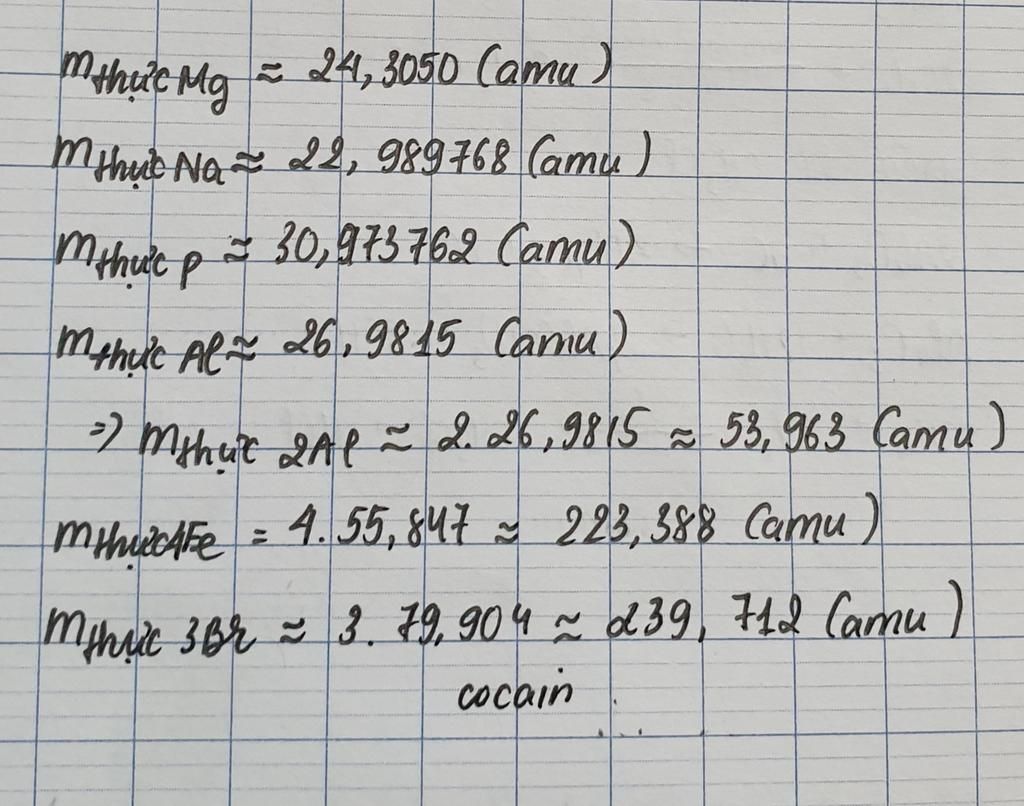 m thực Mg ≈ 24,3050 (amu)
m thực Na ≈ 22,989768 (amu)
m thực P ≈ 30,973762 (amu)
m thực Al ≈ 26,9815 (amu)
=> m thực 2Al ≈ 2.26,9815 ≈ 53,963 (amu)
m thực 4Fe = 4.55,847 ≈ 223,388 (amu)
m thực 3Br ≈ 3.79,904 ≈ 239,712 (amu)
cocain